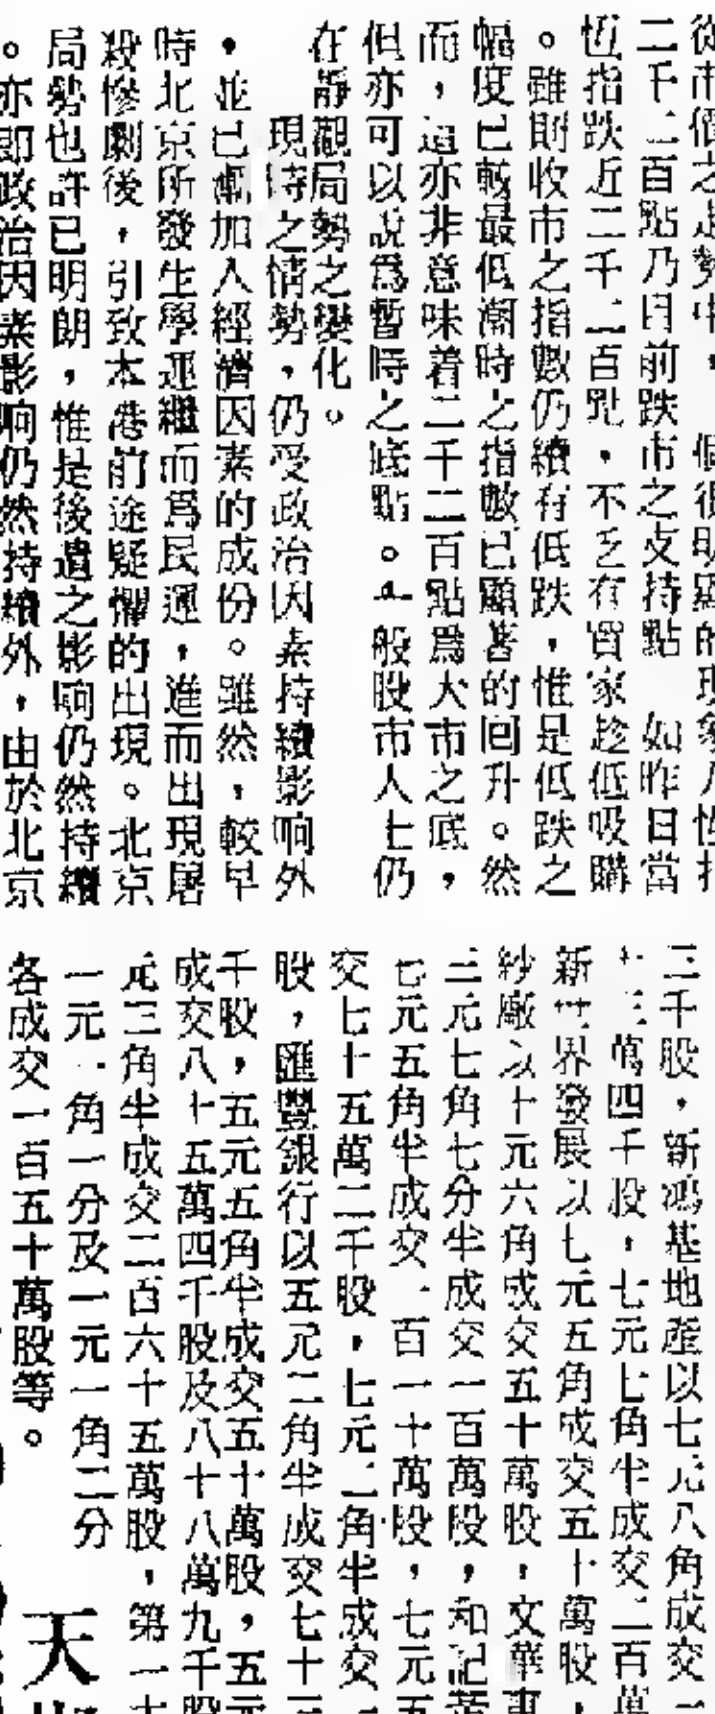 從市價之走勢中，個很明顯的現象乃恆指
二千二百點乃目前跌市之支持點　如昨日當
恆指跌近二千二百點，不乏有買家趁低吸購
。雖則收市之指數仍續有低跌，惟是低跌之
幅度已較最低潮時之指數已顯著的回升。然
而，這亦非意味着二千二百點爲大市之底，
但亦可以說爲暫時之底點。一般股市人士仍
在靜觀局勢之變化。
現時之情勢，仍受政治因素持續影响外
，並已漸加入經濟因素的成份。雖然，較早
時北京所發生學運繼而爲民運，進而出現屠
殺慘劇後，引致本港前途疑懼的出現。北京
局勢也許已明朗，惟是後遺之影响仍然持續
。亦即政治因素影响仍然持續外，由於北京
三千股，新鴻基地產以七元八角成交一
十三萬四千股，七元七角半成交二百萬
新世界發展以七元五角成交五十萬股，
紗廠以十元六角成交五十萬股，文華東
三元七角七分半成交一百萬股，和記黃
七元五角半成交一百一十萬股，七元五
交七十五萬二千股，七元二角半成交一
股，匯豐銀行以五元二角半成交七十二
千股，五元五角半成交五十萬股，五元
成交八十五萬四千股及八十八萬九千股
元三角半成交二百六十五萬股，第一太
一元一角一分及一元一角二分
各成交一百五十萬股等。
天